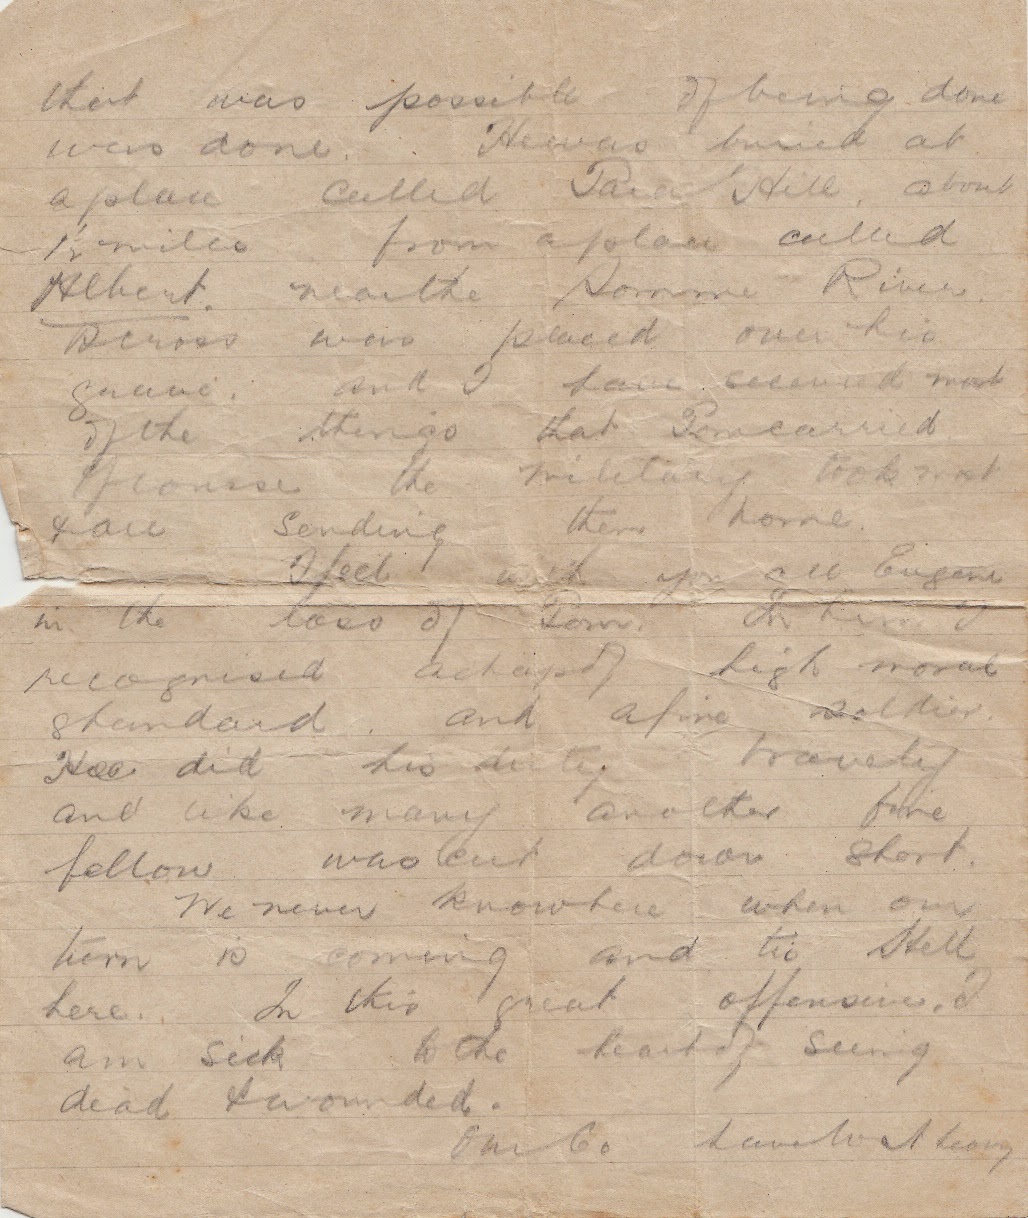 that was possible of being done
was done. He was buried at
a place called Para Hill, about
1½ miles from a place called
Albert. near the Somme River.
A cross was placed over his
grave. and I have secured most
of the things that Tom carried.
Of course the military took most
& are sending them home.
I feel with you all Eugene
in the loss of Tom. In him I
recognised a chap of high moral
standard, and a fine soldier.
Hee did his duty bravely
and like many another fine
fellow was cut down short.
We never know here when our
turn is coming and tis Hell
here. In this great offensive. I
am sick to the heart of seeing
dead & wounded.
Our Co have lost heavy